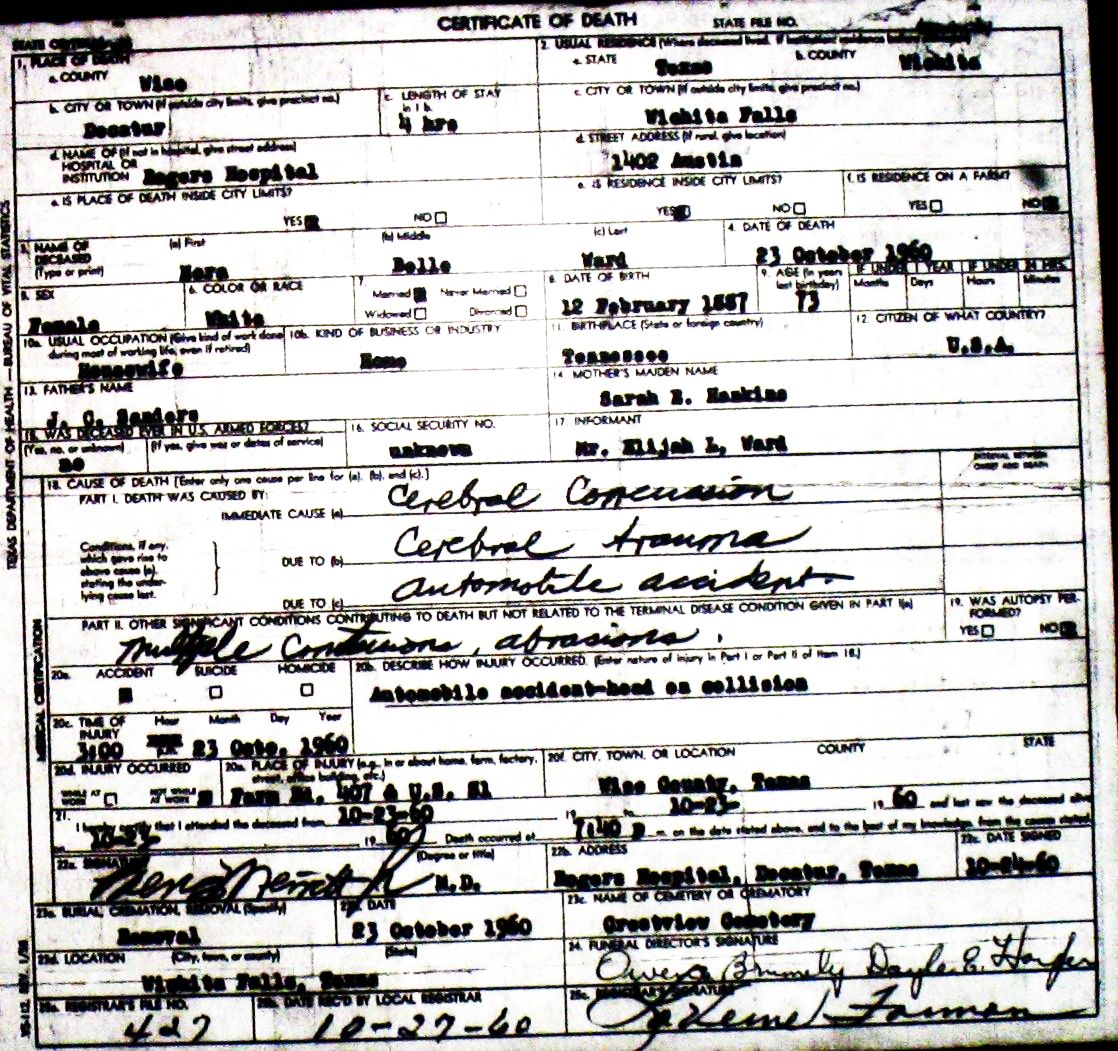 CERTIFICATE OF DEATH STATE FILE NO.
1. PLACE OF DEATH
a. COUNTY Wise
2. USUAL RESIDENCE (Where deceased lived. If institution: residence before
a. STATE Texas b. COUNTY Wichita
b. CITY OR TOWN (If outside city limits, give precinct no.) Decatur
c. LENGTH OF STAY in 1 b. 4 hrs
c. CITY OR TOWN (If outside city limits, give precinct no.) Wichita Falls
d. NAME OF (If not in hospital, give street address) HOSPITAL OR INSTITUTION Rogers Hospital
d. STREET ADDRESS (If rural, give location) 1402 Austin
e. IS PLACE OF DEATH INSIDE CITY LIMITS? YES NO
e. IS RESIDENCE INSIDE CITY LIMITS? YES NO
f. IS RESIDENCE ON A FARM? YES NO
3. NAME OF DECEASED (Type or print)
(a) First (b) Middle Belle (c) Last Ward
4. DATE OF DEATH 23 October 1960
5. SEX Female
6. COLOR OR RACE White
7. Married Never Married Widowed Divorced
8. DATE OF BIRTH 12 February 1887
9. AGE (In years last birthday) 73
IF UNDER 1 YEAR Months Days
IF UNDER 24 HRS. Hours Minutes
10a. USUAL OCCUPATION (Give kind of work done during most of working life, even if retired) Housewife
10b. KIND OF BUSINESS OR INDUSTRY Home
11. BIRTHPLACE (State or foreign country) Tennessee
12. CITIZEN OF WHAT COUNTRY? U.S.A.
13. FATHER'S NAME J. C. Sanders
14. MOTHER'S MAIDEN NAME Sarah E. Hankins
15. WAS DECEASED EVER IN U.S. ARMED FORCES?
(Yes, no, or unknown) no (If yes, give war or dates of service)
16. SOCIAL SECURITY NO. unknown
17. INFORMANT Mr. Elijah L. Ward
18. CAUSE OF DEATH [Enter only one cause per line for (a), (b), and (c).]
INTERVAL BETWEEN ONSET AND DEATH
PART I. DEATH WAS CAUSED BY:
IMMEDIATE CAUSE (a) Cerebral Concussion
Conditions, if any, which gave rise to above cause (a), stating the underlying cause last.
DUE TO (b) Cerebral trauma
DUE TO (c) automobile accident.
PART II. OTHER SIGNIFICANT CONDITIONS CONTRIBUTING TO DEATH BUT NOT RELATED TO THE TERMINAL DISEASE CONDITION GIVEN IN PART I(a)
multiple Contusions, abrasions.
19. WAS AUTOPSY PERFORMED? YES NO
20a. ACCIDENT SUICIDE HOMICIDE
20b. DESCRIBE HOW INJURY OCCURRED. (Enter nature of injury in Part I or Part II of Item 18.)
Automobile accident-head on collision
20c. TIME OF INJURY Hour Month Day Year
3:00 p.m. 23 Octo. 1960
20d. INJURY OCCURRED WHILE AT WORK NOT WHILE AT WORK
20e. PLACE OF INJURY (e.g., in or about home, farm, factory, street, office building, etc.)
Farm Rd. 407 & U.S. 81
20f. CITY, TOWN, OR LOCATION COUNTY STATE
Wise County, Texas
21. I hereby certify that I attended the deceased from 10-23-60 19 to 10-23- 19 60 and last saw the deceased alive
on 10-23 19 60 Death occurred at 7:40 p m. on the date stated above, and to the best of my knowledge, from the causes stated.
22a. SIGNATURE (Degree or title) M.D.
22b. ADDRESS Rogers Hospital, Decatur, Texas
22c. DATE SIGNED 10-24-60
23a. BURIAL, CREMATION, REMOVAL (Specify) Removal
23b. DATE 23 October 1960
23c. NAME OF CEMETERY OR CREMATORY Crestview Cemetery
23d. LOCATION (City, town, or county) (State) Wichita Falls, Texas
24. FUNERAL DIRECTOR'S SIGNATURE
25a. REGISTRAR'S FILE NO. 427
25b. DATE REC'D BY LOCAL REGISTRAR 10-27-60
25c. REGISTRAR'S SIGNATURE
TEXAS DEPARTMENT OF HEALTH — BUREAU OF VITAL STATISTICS
MEDICAL CERTIFICATION